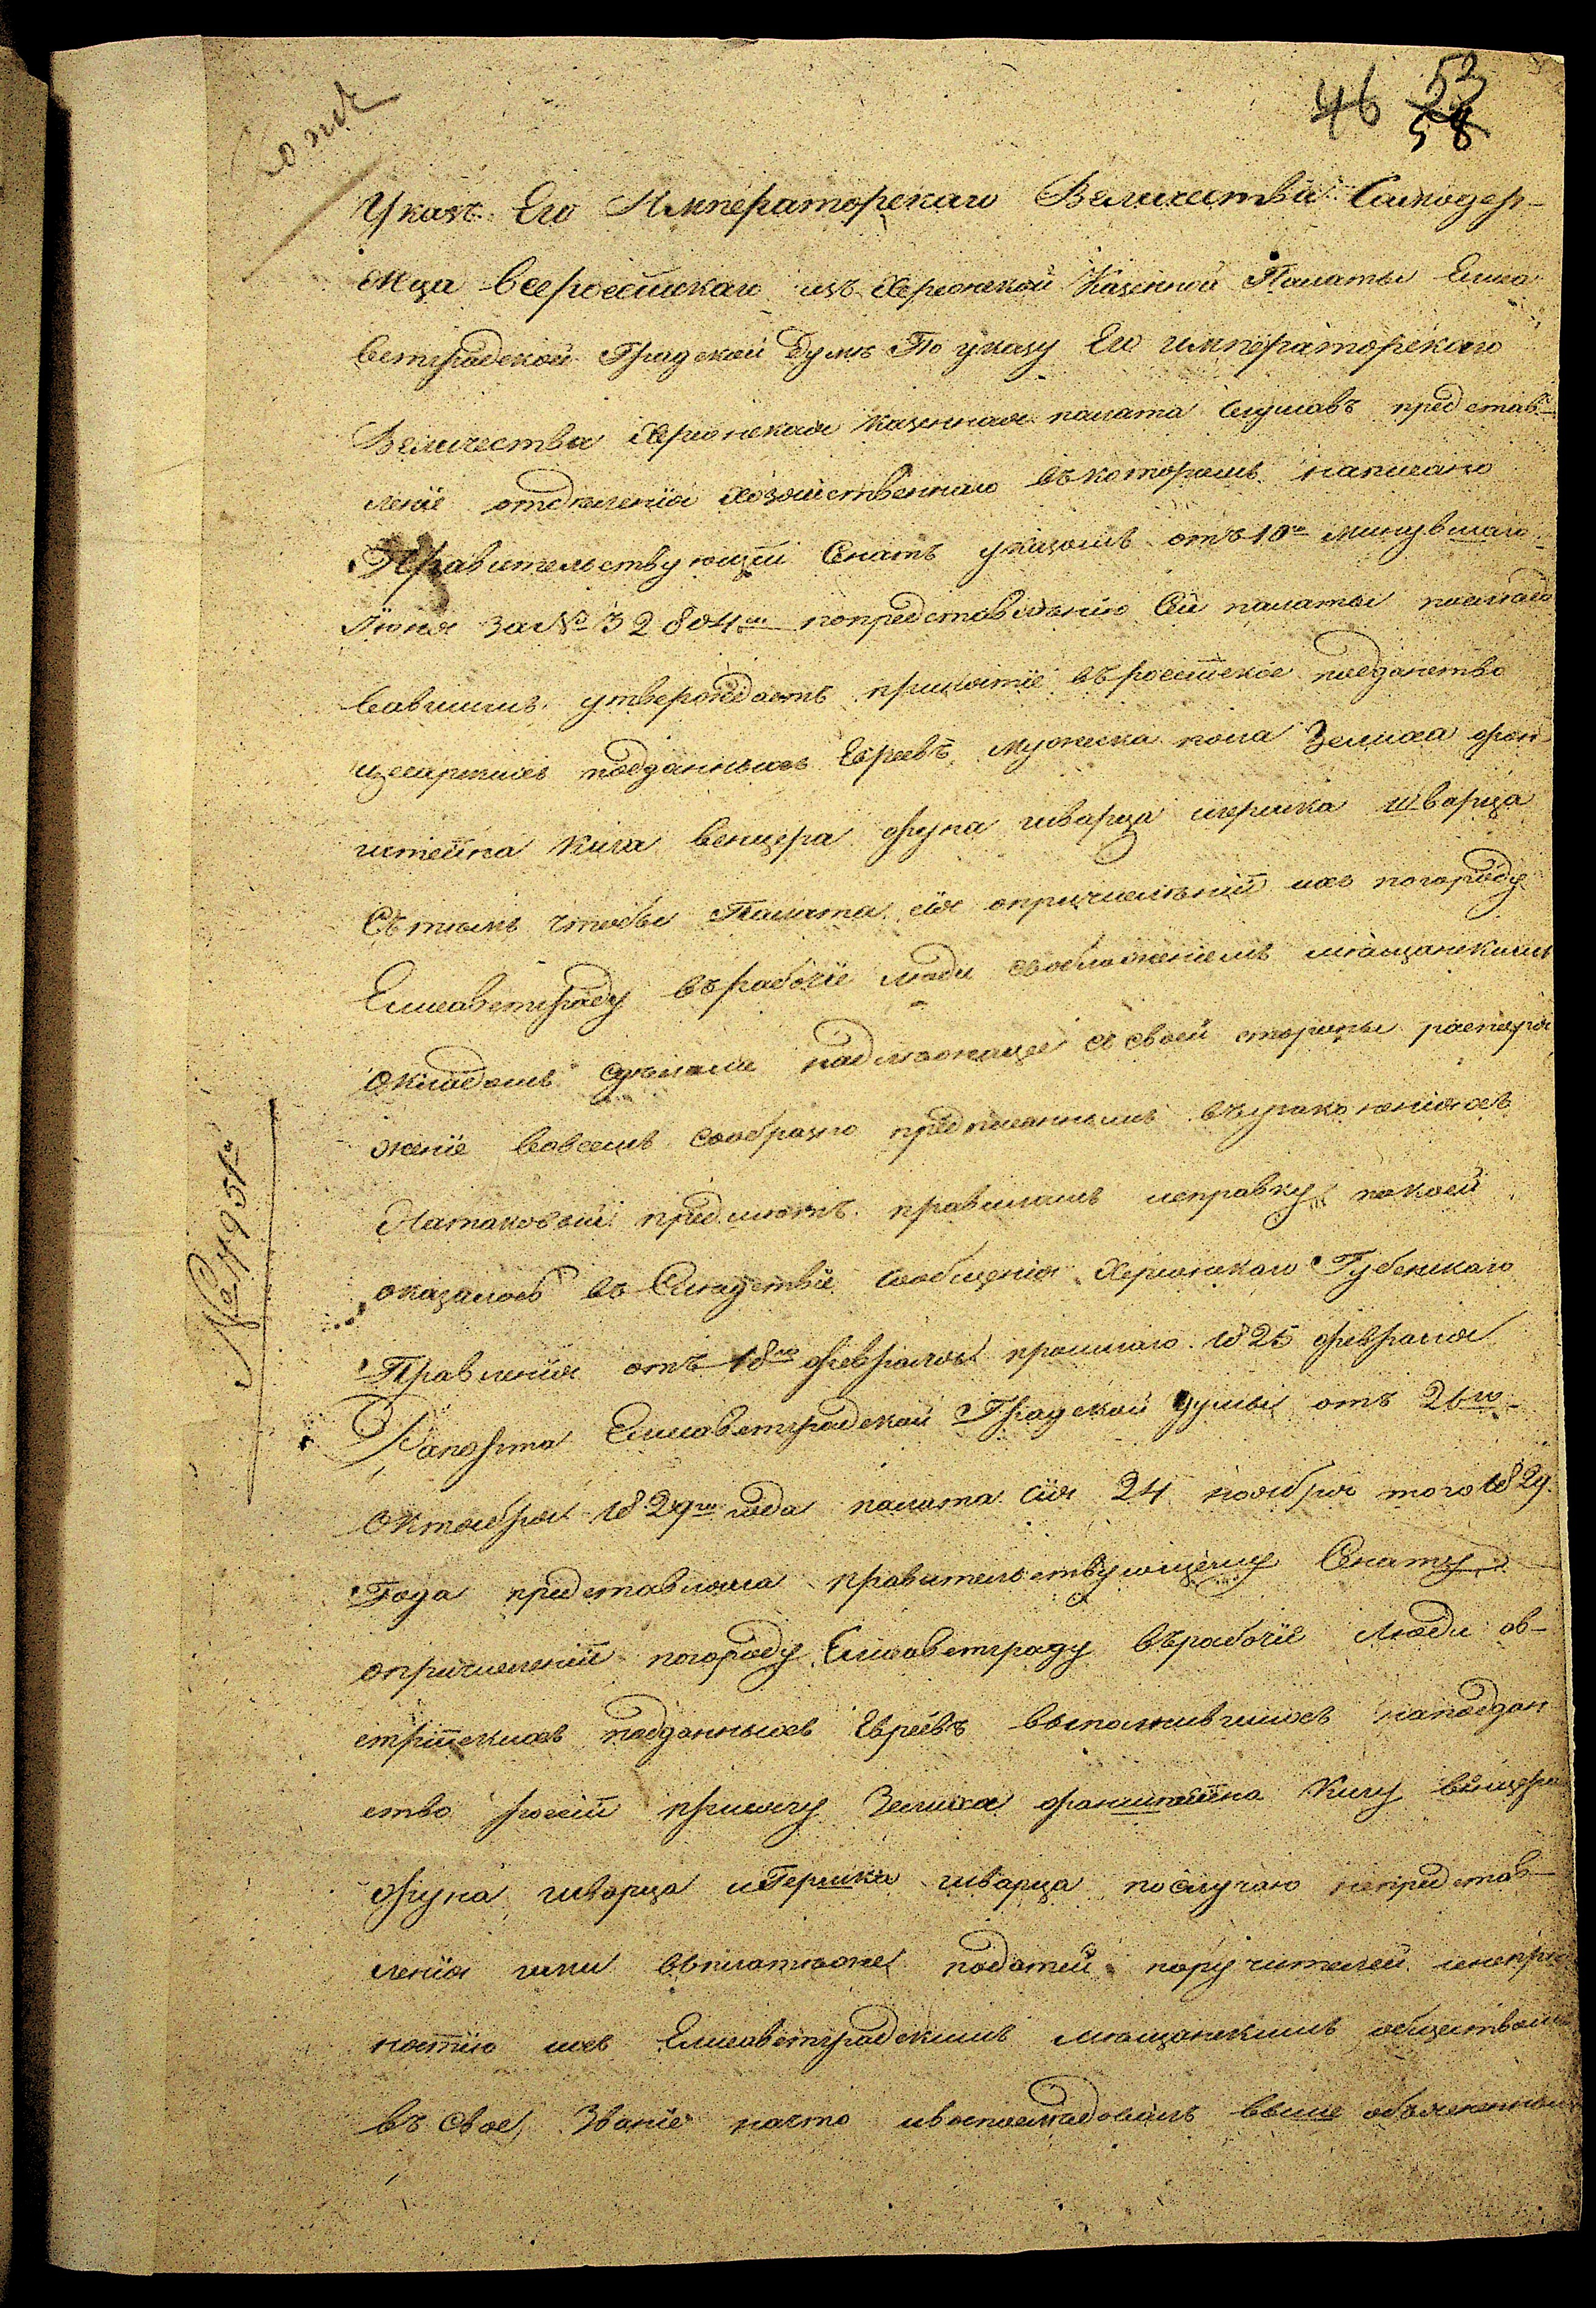 Копія
46 53
58
Указъ Его Императорскаго Величества Самодер-
жца всероссійскаго изъ Херсонской Казенной Палаты Елиса
ветградской Градской Думѣ По указу Его императорскаго
Величества Херсонская казенная палата слушавъ представ-
леніе отдѣленія хозяйственнаго въкоторомъ написано
Правительствующій Сенатъ указомъ отъ 10го минувшаго
Іюня за № 32804м попредставлѣнію Сей палаты послѣдо
вавшимъ утверждаетъ принятіе въроссійское подданство
цесарскихъ подданныхъ Евреевъ мужеска пола Зелиха фран
штейна Кила венцера фуна шварца игершка шварца
Стѣмъ чтобы Палата сія опричисленіи ихъ погороду
Елисаветграду върабочіе люди собложеніемъ мѣщанскимъ
окладомъ здѣлала надлежащее съ своей стороны распоря
женіе вовсемъ сообразно предписаннымъ възаконеніяхъ
Натаковой предметъ правиламъ исправку покоей
оказалось въ Слѣдствіе сообщенія Херсонскаго Губернскаго
Правленія отъ 18го февраля прошлаго 1825 февраля
Рапорта Елисаветградской Градской думы отъ 26го
октября 1829го года палата сія 24 ноября того 1829.
Года представляла правительствующему Сенату
опричисленіи погороду Елисаветграду върабочіе люди ав-
стрійскихъ подданныхъ Евреевъ выполнившихъ наподдан
ство росіи присягу Зелиха франштейна Килу венцера
фуна шварца иГершка шварца послучаю непредстав-
ленія ими въплатежѣ податей поручителей
ихъ Елисаветградскимъ мѣщанскимъ обществомъ
въ свое Званіе начто ивоспослѣдовалъ выше объясненной
№ 4951й